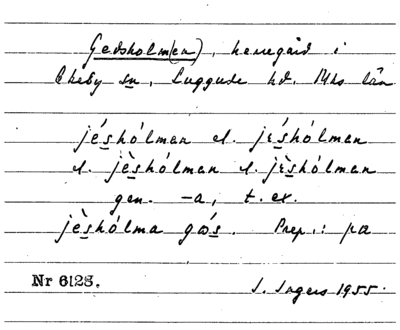 Gedsholm(en), herregård i
Ekeby sn, Luggude hd. Mhs län
jéshólman el. jɛ́shólman
el. jèshólman el. jɛ̀shólman
gen. -a, t. ex.
jèshólma gɷ́s. Prep.: pa
Nr 6128. I. Ingers 1955.